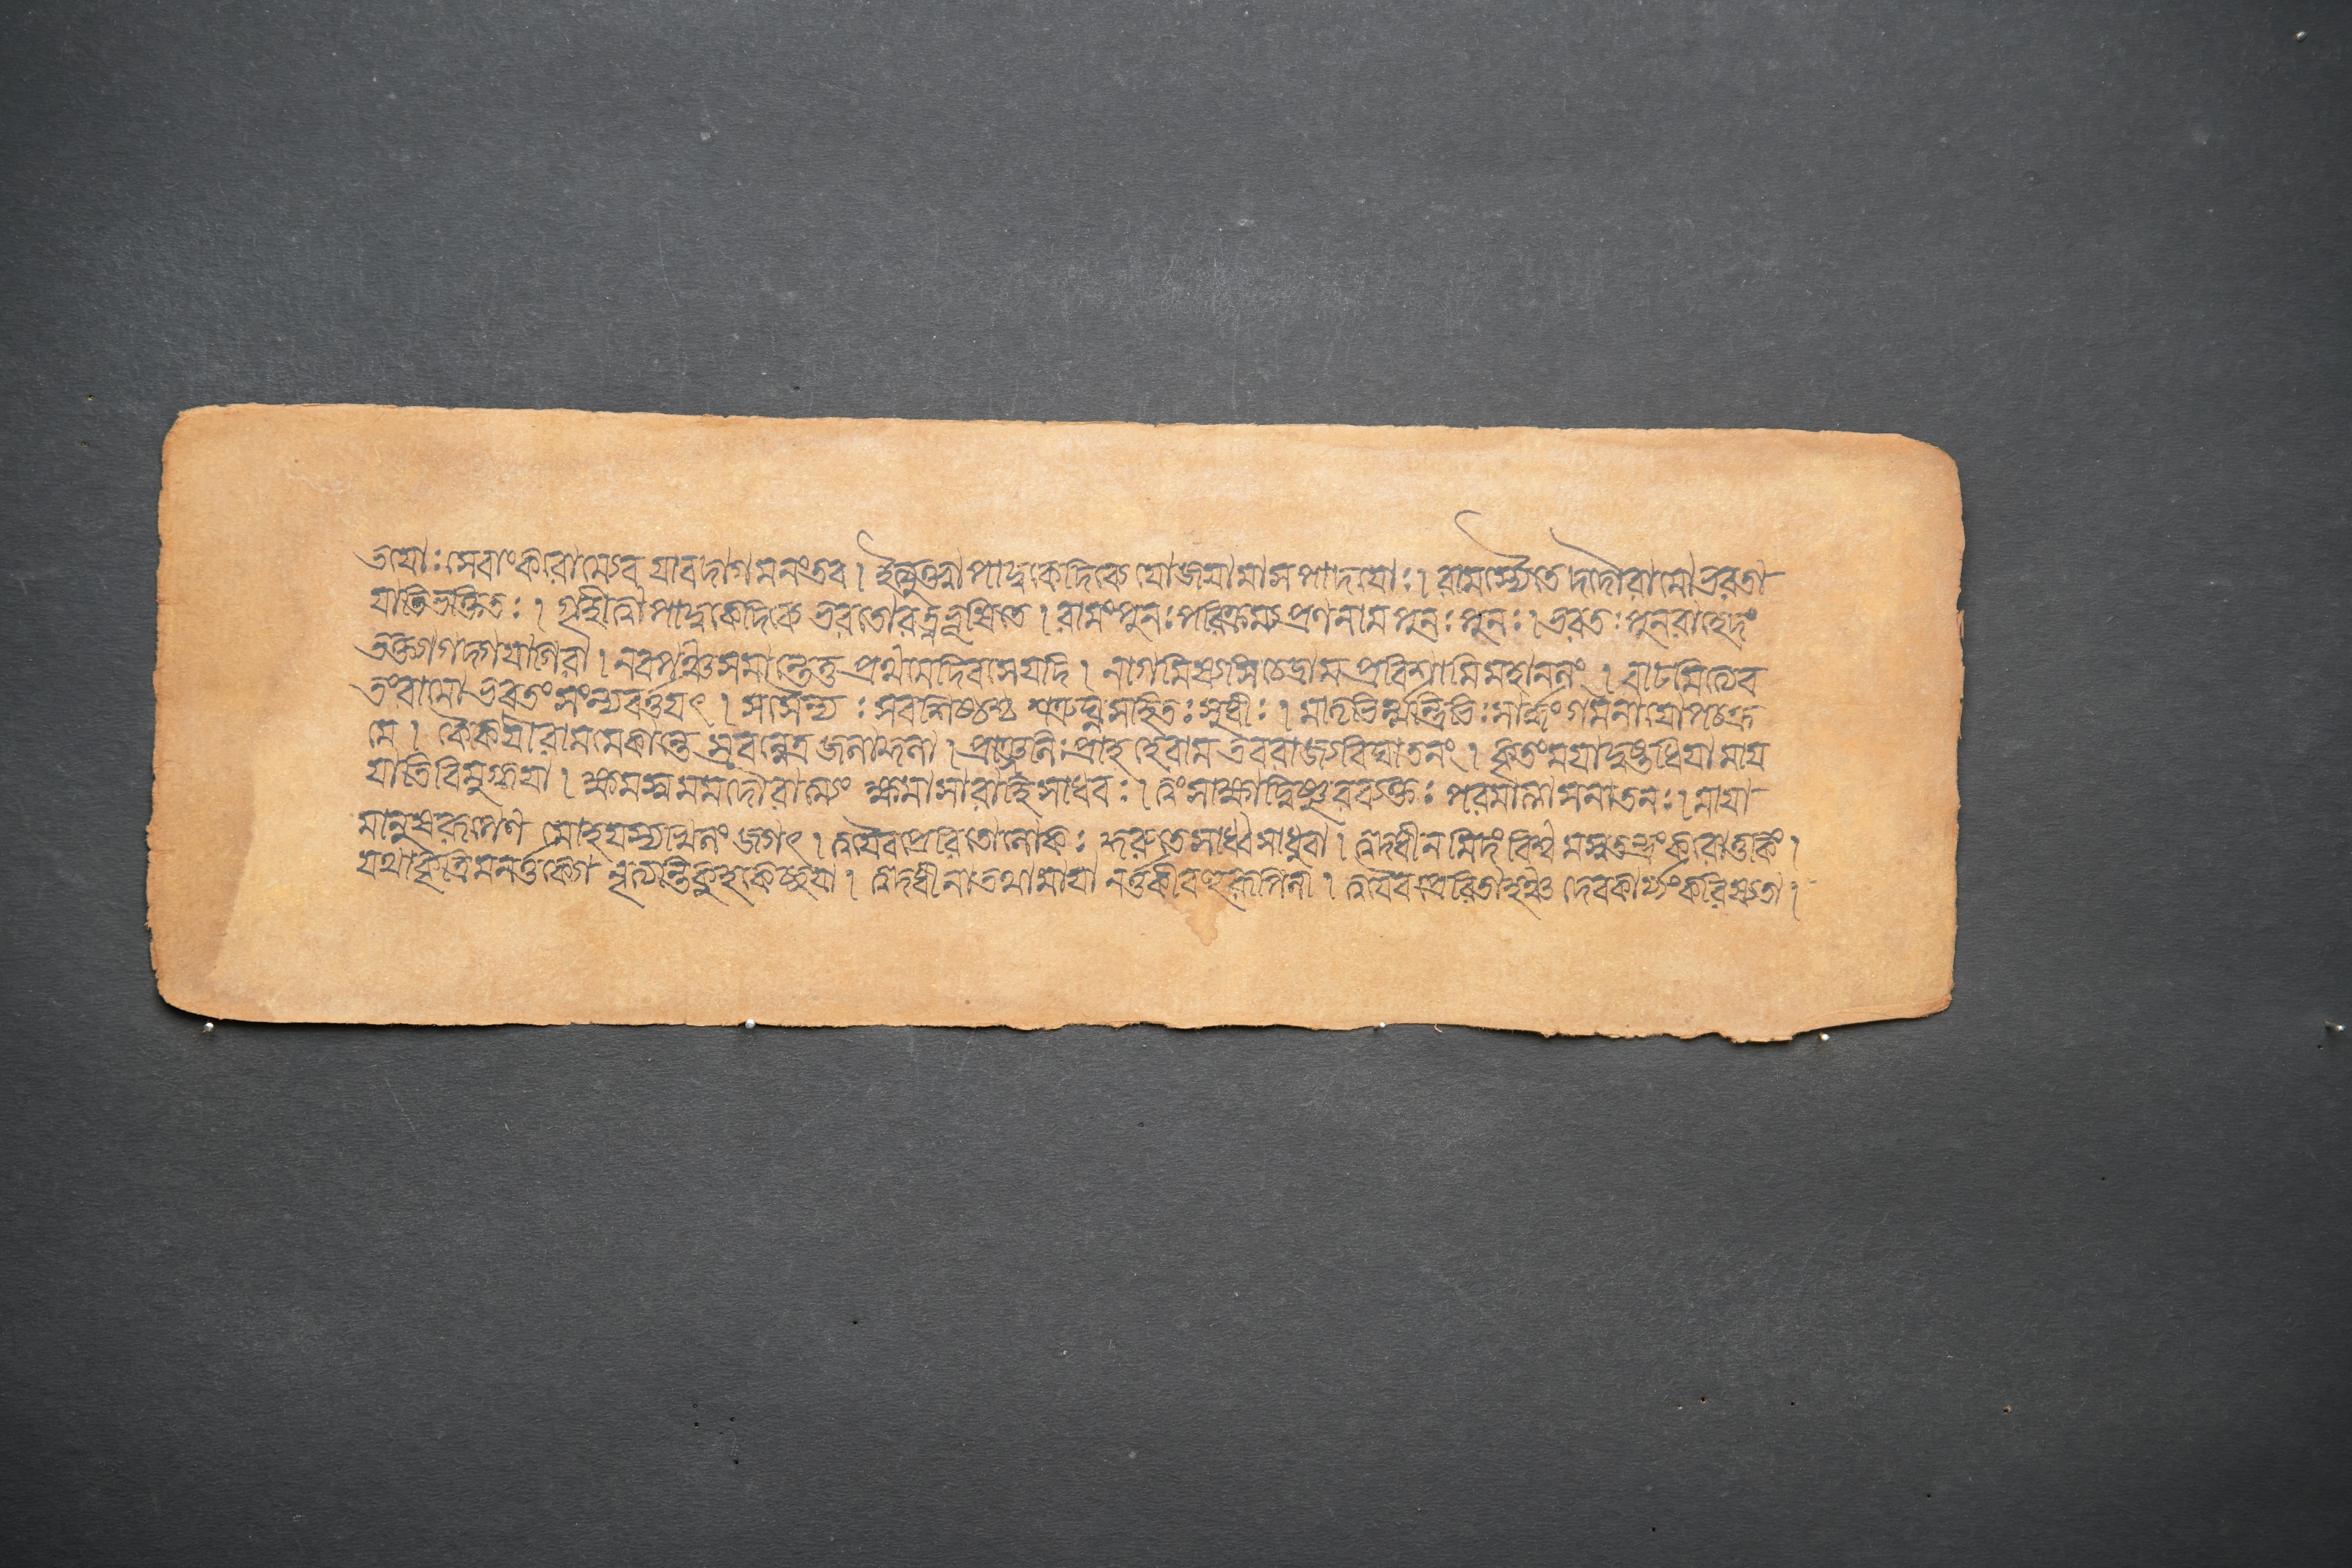 তয়োঃ সেবাং করোম্যেব যাবদাগমনং তব । ইত্যুক্ত্বা পাদুকে দিব্যে যোজয়ামাস পাদয়োঃ । রামস্যৈতে দদৌ রামো ভরতা
য়াতিভক্তিতঃ । গৃহীত্বা পাদুকে দিব্যে ভরতো রত্নভূষিতে । রামং পুনঃ পরিক্রম্য প্রণনাম পুনঃ পুনঃ । ভরতঃ পুনরাহেদং
ভক্ত্যা গদ্গদয়া গিরা । নবপঞ্চসমান্তে তু প্রথমে দিবসে যদি । নাগমিষ্যসি চেদ্রাম প্রবিশামি মহানলং । বাঢমিত্যেব
তং রামো ভরতং সংন্যবর্ত্তয়ৎ । সসৈন্যঃ সবশিষ্ঠশ্চ শত্রুঘ্নসহিতঃ সুধীঃ । মাতৃভির্ম্মন্ত্রিভিঃ সার্দ্ধং গমনায়োপচক্র
মে । কৈকয়ী রামমেকান্তে স্রবন্নেত্রজলাকুলা । প্রাঞ্জলিঃ প্রাহ হে রাম তব রাজ্যবিঘাতনং । কৃতং ময়া দুষ্টধিয়া মায়
য়াতিবিমুগ্ধয়া । ক্ষমস্ব মম দৌরাত্ম্যং ক্ষমাসারা হি সাধবঃ । ত্বং সাক্ষাদ্বিষ্ণুরব্যক্তঃ পরমাত্মা সনাতনঃ । মায়া
মানুষরূপেণ মোহয়স্যখিলং জগৎ । ত্বয়ৈব প্রেরিতো লোকঃ কুরুতে সাধ্বসাধু বা । ত্বদধীনমিদং বিশ্বমস্বতন্ত্রং করোতি কিং ।
যথা কৃত্রিমনর্ত্তক্যো নৃত্যন্তি কুহকেচ্ছয়া । ত্বদধীনা তথা মায়া নর্ত্তকী বহুরূপিণী । ত্বয়ৈব প্রেরিতাহঞ্চ দেবকার্য্যং করিষ্যতা ।